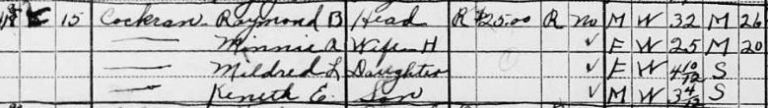 15 Cockran Raymond B Head R $25.00 R No M W 32 M 26
— Minnie A Wife-H ✓ F W 25 M 20
— Mildred L Daughter ✓ F W 4 10/12 S
— Keneth E. Son ✓ M W 3 4/12 S